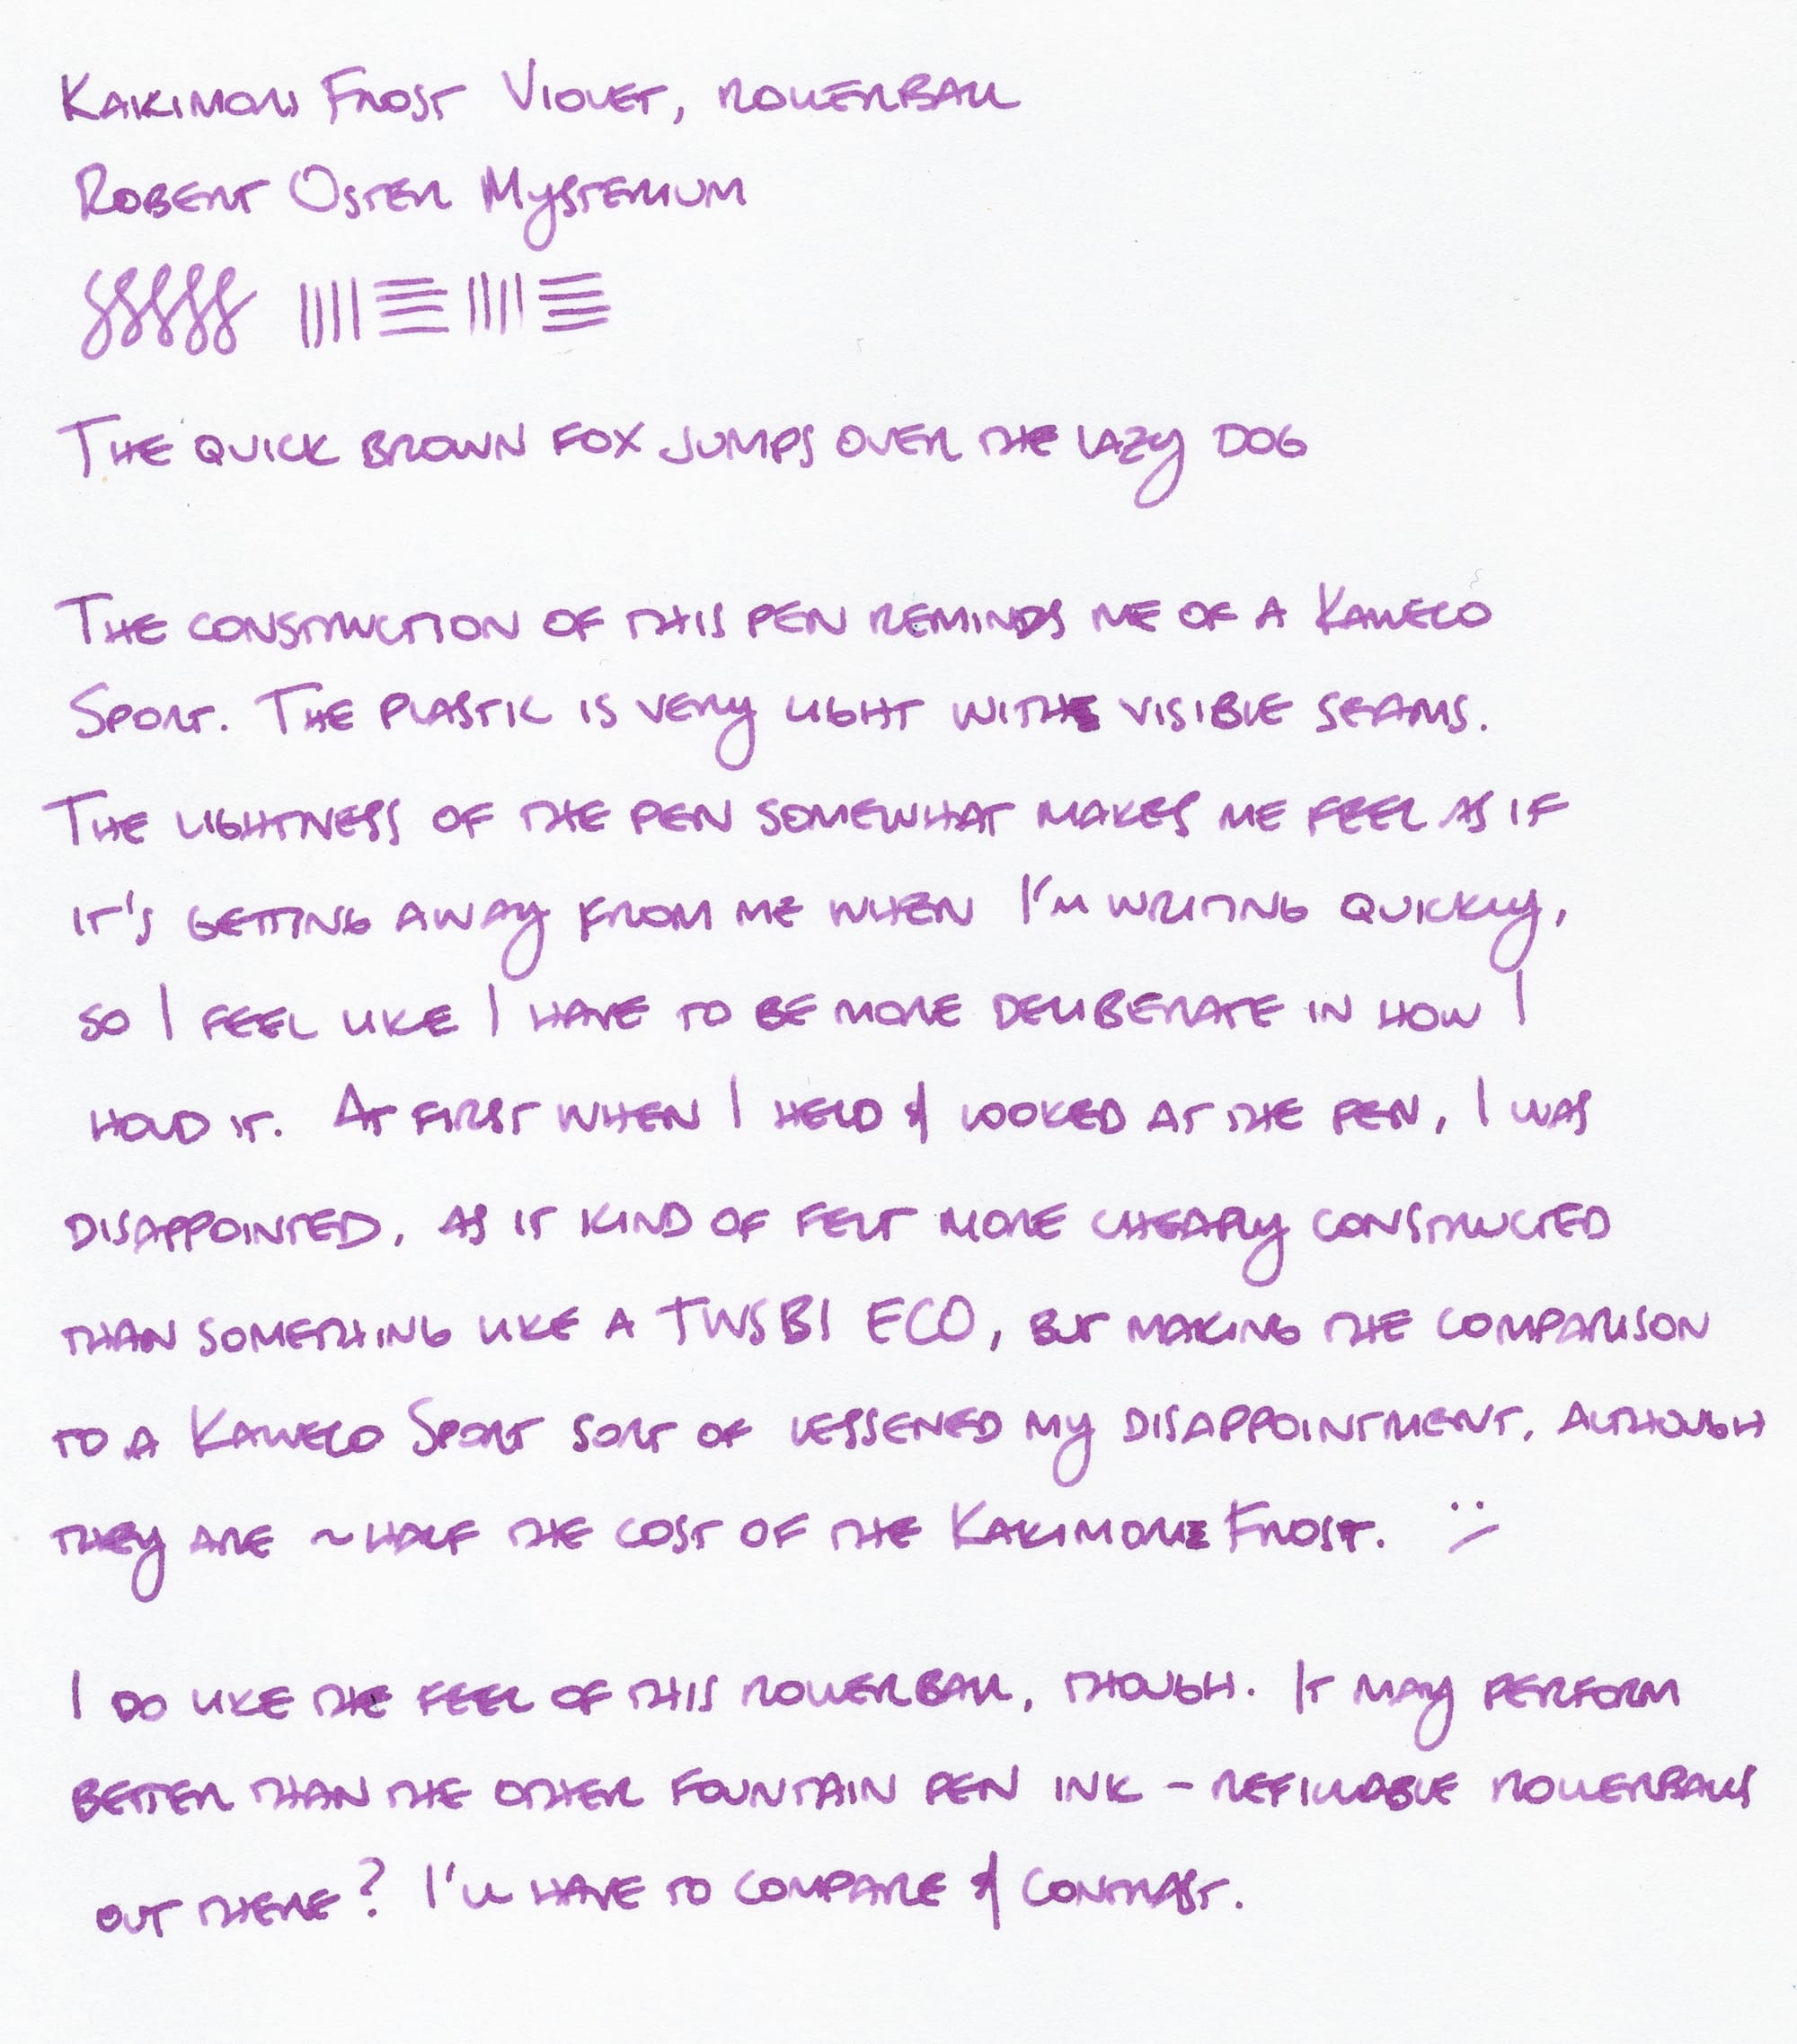 Kakimori Frost Violet, rollerball
Robert Oster Mysterium
The quick brown fox jumps over the lazy dog
The construction of this pen reminds me of a Kaweco
Sport. The plastic is very light with visible seams.
The lightness of the pen somewhat makes me feel as if
it's getting away from me when I'm writing quickly,
so I feel like I have to be more deliberate in how I
hold it. At first when I held & looked at the pen, I was
disappointed, as it kind of felt more cheaply constructed
than something like a TWSBI ECO, but making the comparison
to a Kaweco Sport sort of lessened my disappointment, although
they are ~half the cost of the Kakimori Frost. :/
I do like the feel of this rollerball, though. It may perform
better than the other fountain pen ink - refillable rollerballs
out there? I'll have to compare & contrast.